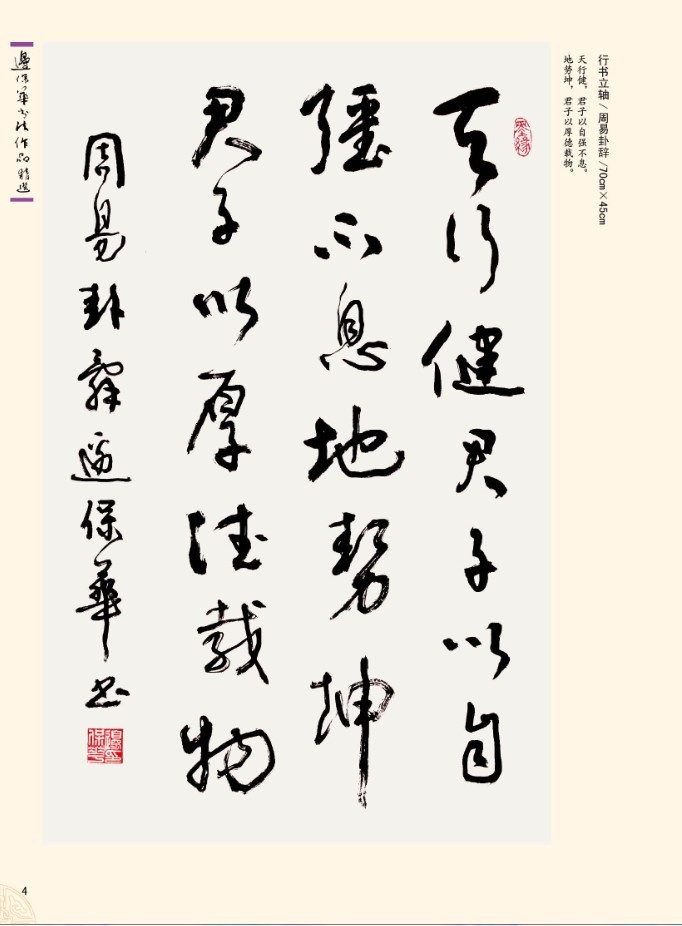 行书立轴 / 周易卦辞 / 70cm×45cm
天行健，君子以自强不息。
地势坤，君子以厚德载物。
天行健君子以自
彊不息地勢坤
君子以厚德載物
周易卦辭邊保華书
邊保華印
邊保華书法作品精選
4